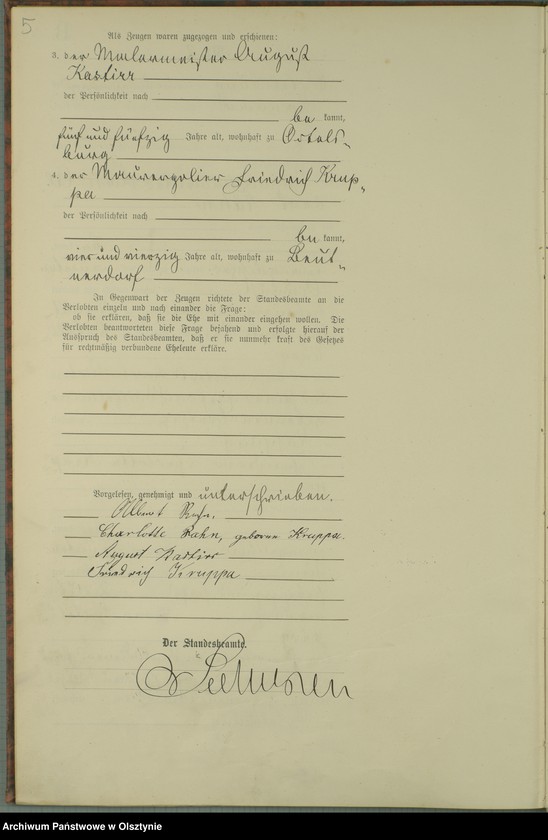 5
Als Zeugen waren zugezogen und erschienen:
3. der Malermeister August
Kastirr
der Persönlichkeit nach
bekannt,
fünf und fünfzig Jahre alt, wohnhaft zu Ortels-
burg
4. der Maurerpolier Friedrich Krup-
pa
der Persönlichkeit nach
bekannt,
vier und vierzig Jahre alt, wohnhaft zu Beut-
nerdorf
In Gegenwart der Zeugen richtete der Standesbeamte an die
Verlobten einzeln und nach einander die Frage:
ob sie erklären, daß sie die Ehe mit einander eingehen wollen. Die
Verlobten beantworteten diese Frage bejahend und erfolgte hierauf der
Ausspruch des Standesbeamten, daß er sie nunmehr kraft des Gesetzes
für rechtmäßig verbundene Eheleute erkläre.
Vorgelesen, genehmigt und unterschrieben.
Albert
Charlotte Hahn, geborene Kruppa.
August Kastirr
Friedrich Kruppa
Der Standesbeamte.
Archiwum Państwowe w Olsztynie